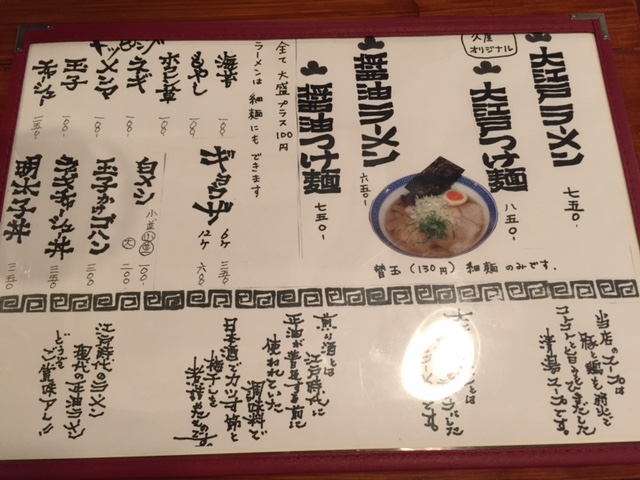 大江戸ラーメン 七五〇-
久屋
オリジナル
大江戸つけ麺 八五〇-
醤油ラーメン 六五〇-
醤油つけ麺 七五〇-
替玉(130円)細麺のみです。
全て大盛プラス100円
ラーメンは細麺にもできます
海苔 一〇〇-
もやし 一〇〇-
ホウレン草 一〇〇-
ネギ 一〇〇-
メンマ 一〇〇-
玉子 一〇〇-
チャーシュー
ギョウザ 6ケ 三五〇
12ケ 六八〇
白メシ 小 一〇〇-
大 二〇〇
玉子かけゴハン 二〇〇
ネギチャーシュー丼 三五〇
明太子丼 三五〇
当店のスープは
豚と鶏を弱火で
コトコトと旨みをひきだした
清湯スープです。
煎り酒とは
江戸時代に
正油が普及する前に
使われていた
調味料で
日本酒でカツオ節と
梅干しを
煮詰めたものです。
江戸時代のラーメン
現代の正油ラーメン
どうぞ
ご賞味下さい